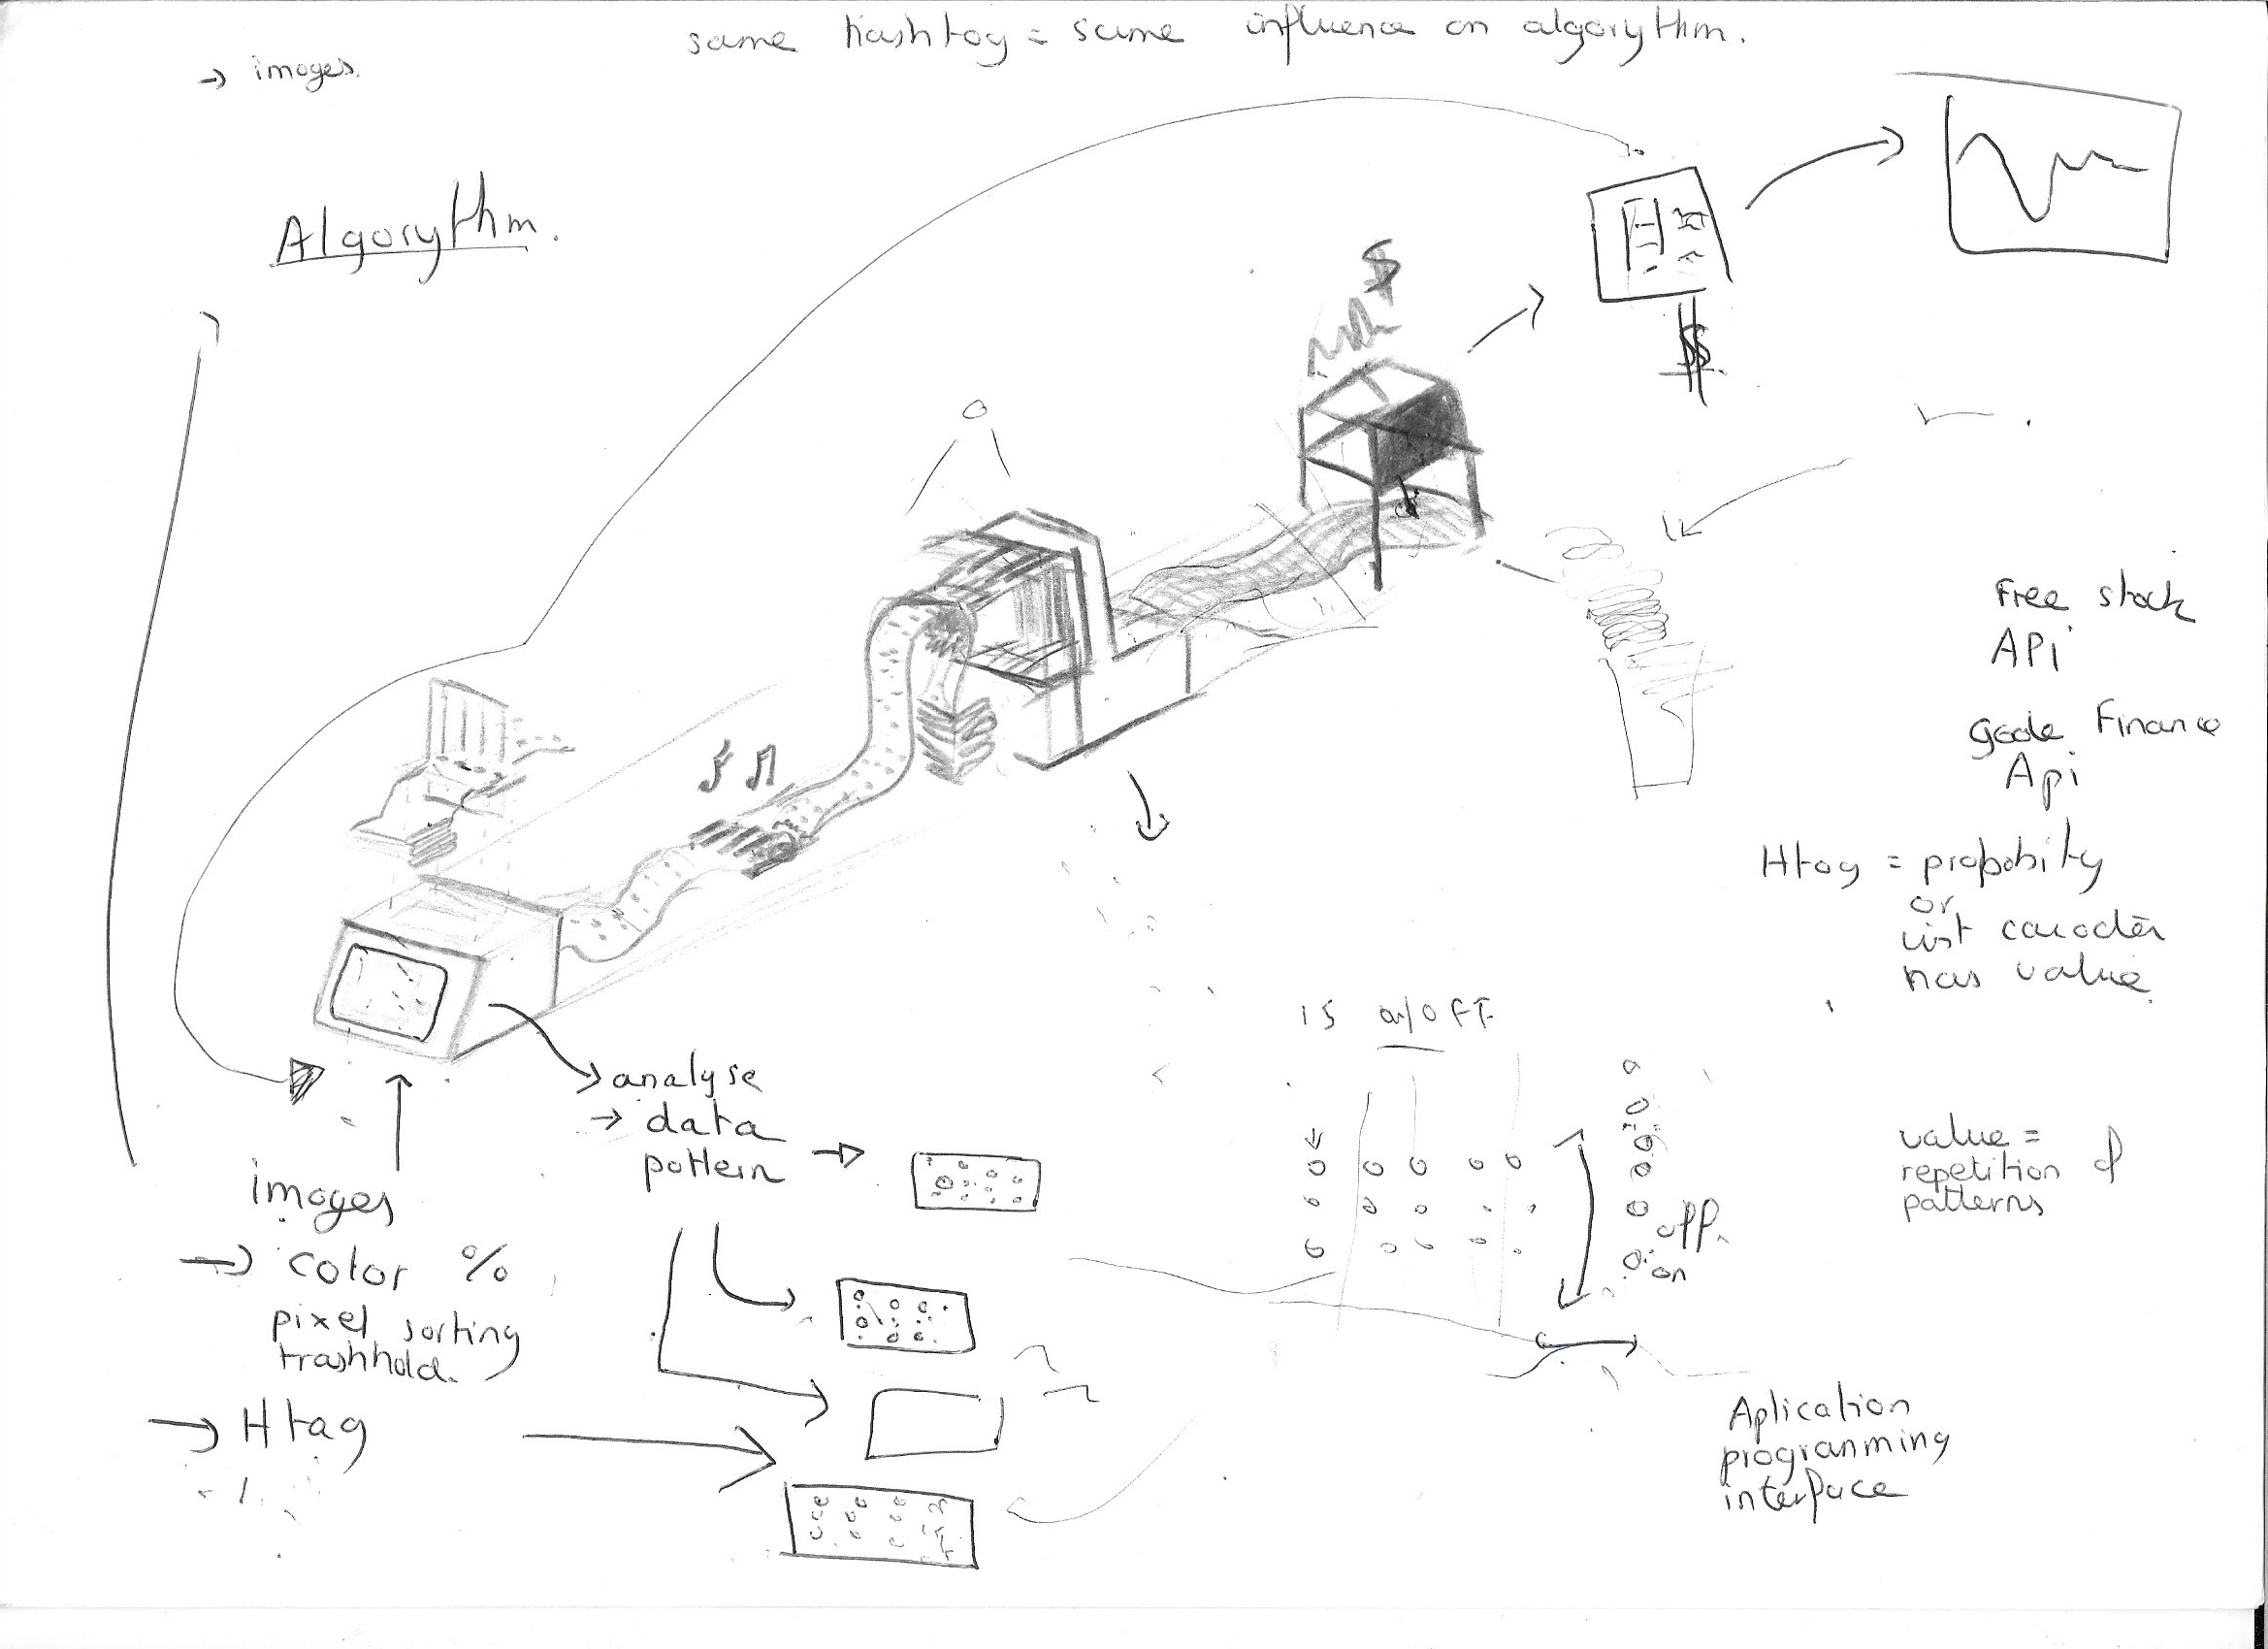 same hashtag = same influence on algorythm.
→ images.
Algorythm.
$
$
Free stock
APi
Finance
Api
Htag = propobility
or
caracter
has value.
15 on/OFF
analyse
→ data
pattern →
images
→ color %
pixel sorting
trashhold.
→ Htag
off.
on
value =
repetition of
patterns
Aplication
programming
interface